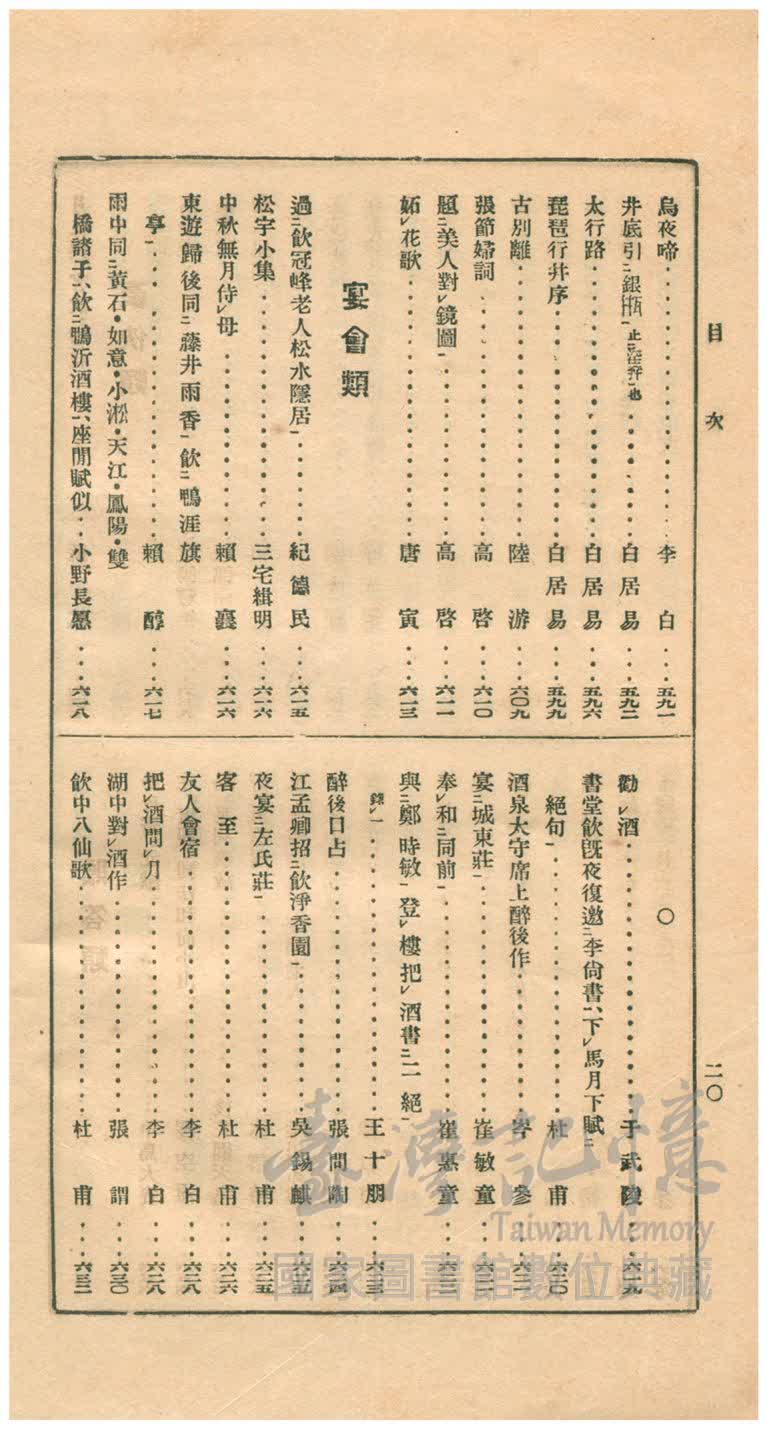 目次
二〇
烏夜啼……李白……五九一
井底引㆓銀瓶㆒止㆓淫奔㆒也……白居易……五九二
太行路……白居易……五九六
琵琶行幷序……白居易……五九九
古別離……陸游……六〇九
張節婦詞……高啓……六一〇
題㆓美人對㆑鏡圖㆒……高啓……六一一
妬㆑花歌……唐寅……六一三
宴會類
過㆓飮冠峰老人松水隱居㆒……紀德民……六一五
松宇小集……三宅緝明……六一六
中秋無月侍㆑母……賴襄……六一六
東遊歸後同㆓藤井雨香㆒飮㆓鴨涯旗
亭㆒……賴醇……六一七
雨中同㆓黃石・如意・小淞・天江・鳳陽・雙
橋諸子㆒、飮㆓鴨沂酒樓㆒、座間賦似……小野長愿……六一八
〇
勸㆑酒……于武陵……六一九
書堂飮旣夜復邀㆓李尙書㆒、下㆑馬月下賦㆓
絕句㆒……杜甫……六二〇
酒泉太守席上醉後作……岑參……六二一
宴㆓城東莊㆒……崔敏童……六二一
奉㆑和㆓同前㆒……崔惠童……六二二
與㆓鄭時敏㆒登㆑樓把㆑酒書㆓二絕㆒
錄㆑一……王十朋……六二三
醉後口占……張問陶……六二四
江孟卿招㆓飮淨香園㆒……吳錫麒……六二五
夜宴㆓左氏莊㆒……杜甫……六二五
客至……杜甫……六二六
友人會宿……李白……六二八
把㆑酒問㆑月……李白……六二八
湖中對㆑酒作……張謂……六三〇
飮中八仙歌……杜甫……六三二
臺灣記憶
Taiwan Memory
國家圖書館數位典藏